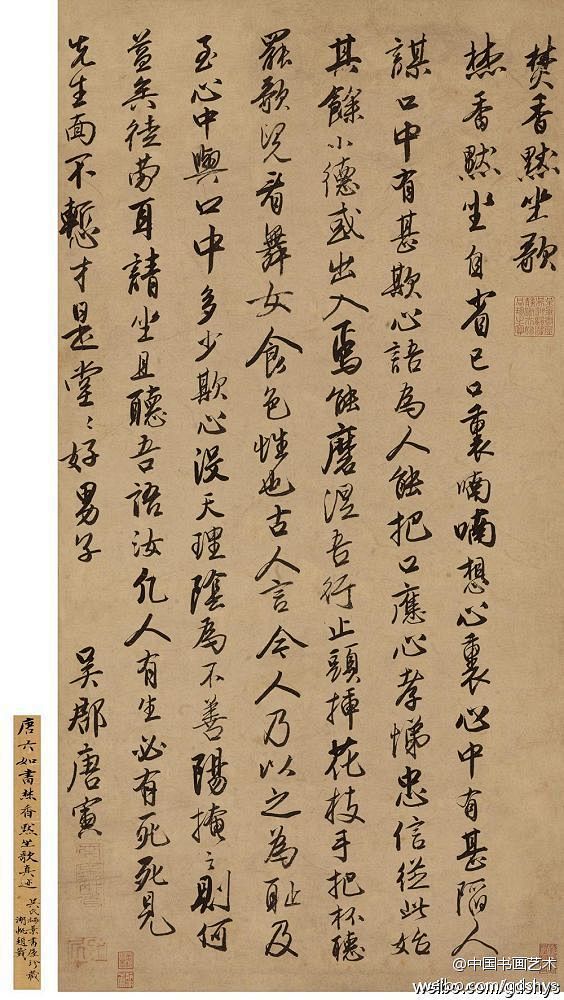 焚香默坐歌
焚香默坐自省己口裏喃喃想心裏心中有甚陷人
謀口中有甚欺心語為人能把口應心孝悌忠信從此始
其餘小德或出入焉能磨涅吾行止頭插花枝手把杯聽
罷歌兒看舞女食色性也古人言今人乃以之為恥及
至心中與口中多少欺心沒天理陰為不善陽掩之則何
益矣徒勞耳請坐且聽吾語汝凡人有生必有死死見
先生面不慙才是堂〻好男子 吳郡唐寅
唐六如書焚香默坐歌真迹
吳氏梅景書屋珍藏
湖帆題籤
@中国书画艺术
weibo.com/gdshys